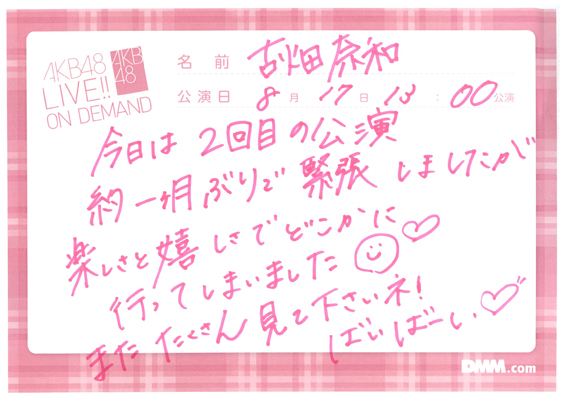 AKB48
LIVE!!
ON DEMAND
AKB
48
名前 古畑奈和
公演日 8月17日 13:00公演
今日は2回目の公演
約一ヶ月ぶりで緊張しましたが
楽しさと嬉しさでどこかに
行ってしまいました
またたくさん見て下さいネ!
ばいばーい
DMM.com